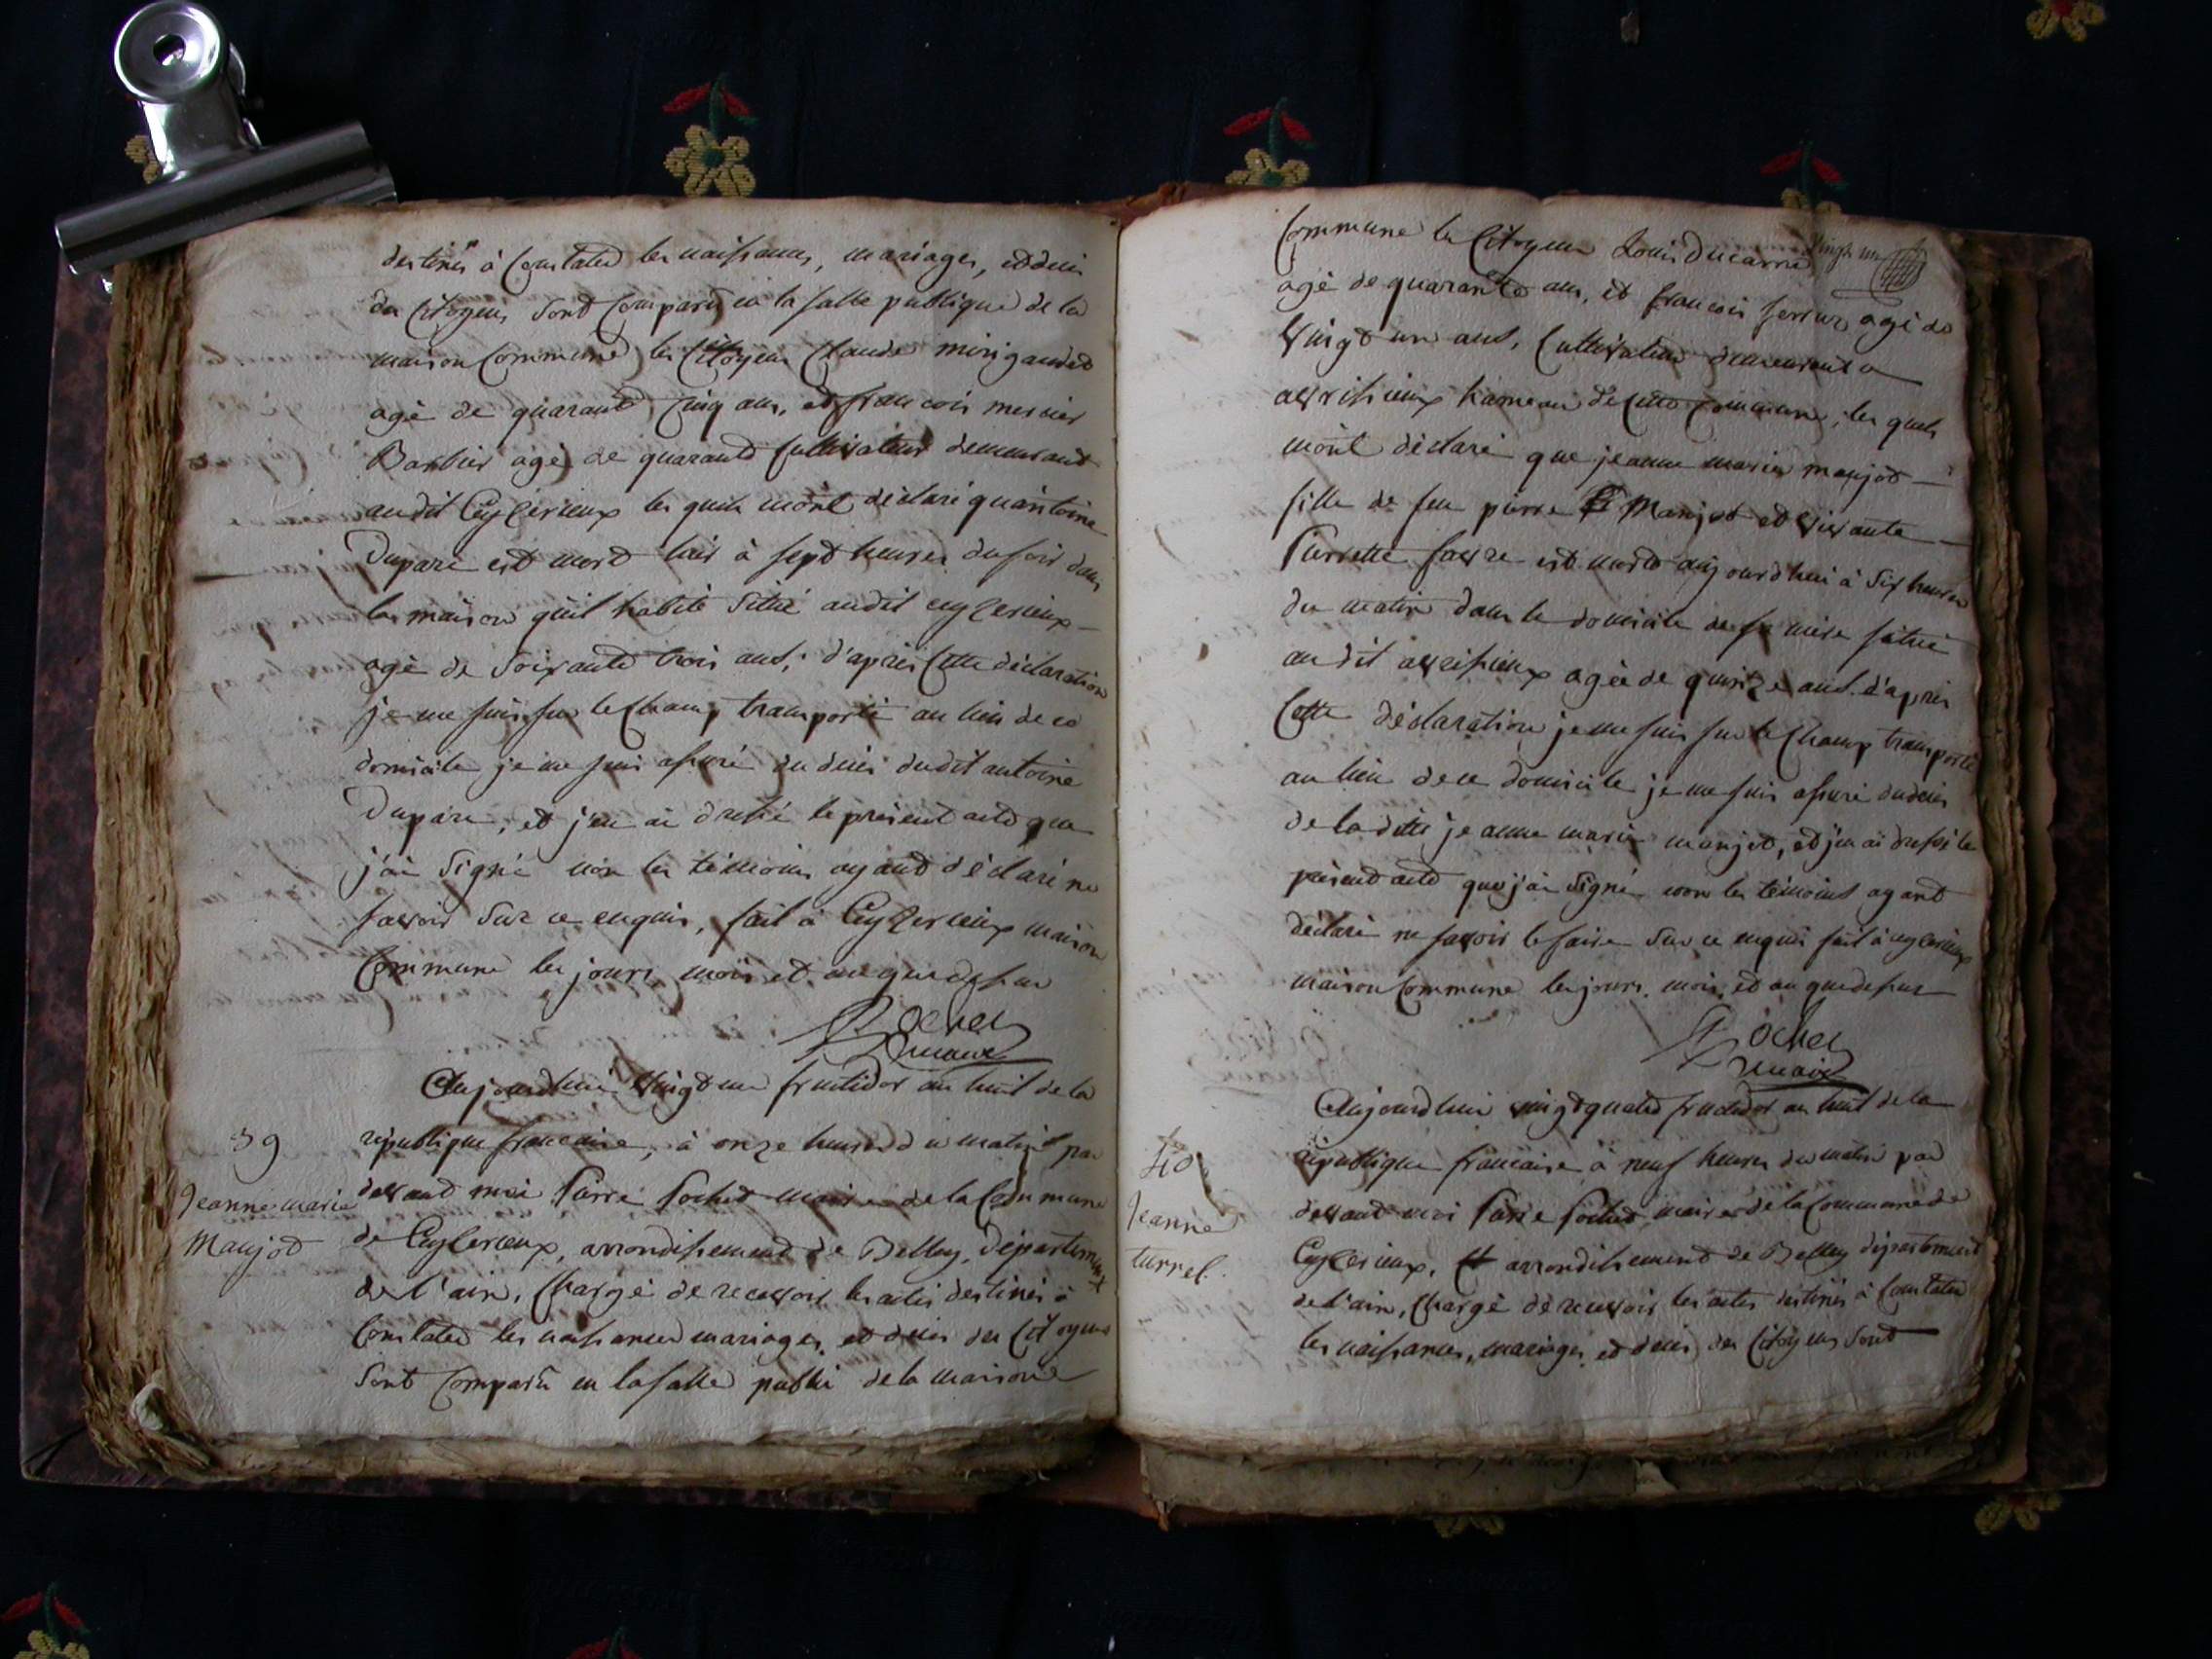 destinés à Constater les naissances, mariages, et décès
des Citoyens sont Comparu en la salle publique de la
maison Commune les Citoyens Claude mirigaudet
agé de quarante Cinq ans, et francois mercier
Barbier agé de quarante Cultivateurs demeurant
audit Cuyzerieux les quels mont déclaré quantoine
Duparc est mort hier à sept heures du soir dans
la maison quil habite situé audit cuyzerieux
agé de soixante trois ans, d'après Cette déclaration
je me suis sur le Champ transporté au lieu de ce
domicile je me suis assuré du décès dudit antoine
Duparc, et j'en ai dressé le présent acte que
j'ai signé non les témoins ayant déclaré ne
savoir sur ce enquis, fait à Cuyzerieux maison
Commune les jours mois et an que dessus
Pochet
maire
Aujourdhui vingt un fructidor an huit de la
39
république francaise, à onze heures du matin par
Jeanne marie
Manjot
devant moi Pierre Pochet maire de la Commune
de Cuyzerieux, arrondissement de Belley, département
de l'ain, Chargé de recevoir les actes destinés à
Constater les naissances mariages, et décès des Citoyens
sont Comparu en la salle publi de la maison
vingt un
Commune les Citoyens Louis Ducarre
agé de quarante ans, et francois agé de
vingt un ans, Cultivateurs demeurant a
avrissieux hameau de Cette Commune, les quels
mont déclaré que jeanne marie manjot
fille de feu pierre Manjot et vivante
Pierrette favre est morte aujourdhui à six heures
du matin dans le domicile de sa mère situé
au dit avrissieux agée de quinze ans. d'après
Cette déclaration je me suis sur le Champ transporté
au lieu de ce domicile je me suis assuré du décès
de la ditte jeanne marie manjot, et j'en ai dressé le
présent acte que j'ai signé non les témoins ayant
déclaré ne savoir le faire sur ce enquis fait à cuyzerieux
maison Commune les jours, mois, et an que dessus
Pochet
maire
Aujourdhui vingt quatre fructidor an huit de la
40
république francaise à neuf heures du matin par
Jeanne
turrel.
devant moi Pierre Pochet maire de la Commune de
Cuyzerieux, arrondissement de Belley département
de l'ain, Chargé de recevoir les actes destinés à Constater
les naissances, mariages, et décès des Citoyens sont